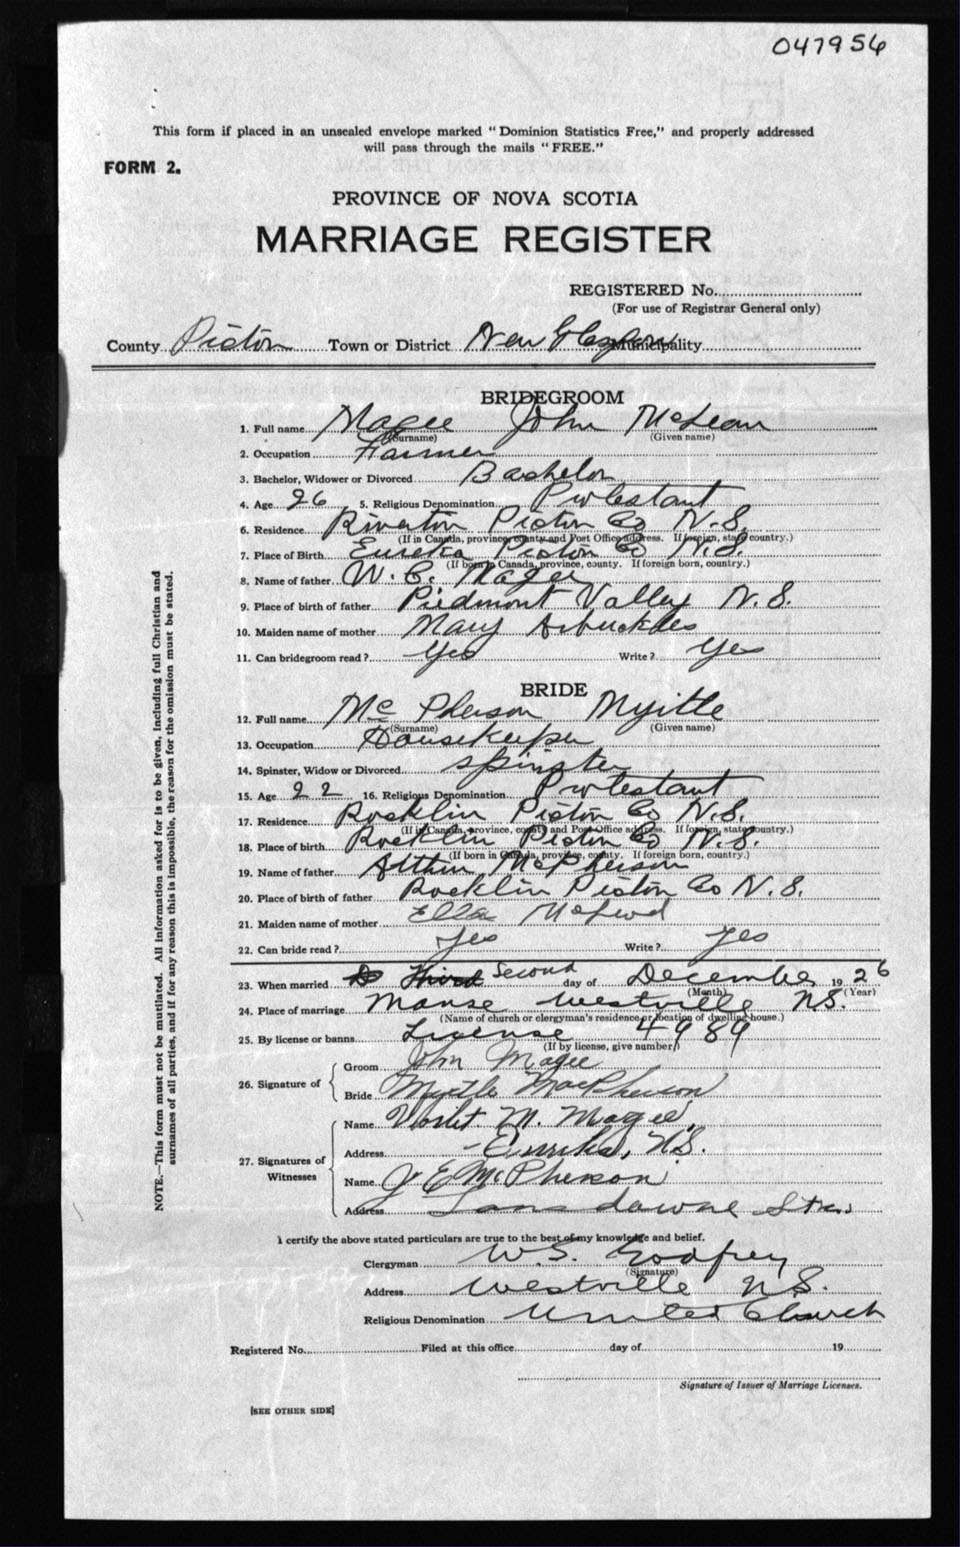 047956
This form if placed in an unsealed envelope marked "Dominion Statistics Free," and properly addressed
will pass through the mails "FREE."
FORM 2.
PROVINCE OF NOVA SCOTIA
MARRIAGE REGISTER
REGISTERED No.
(For use of Registrar General only)
County Pictou Town or District New Glasgow Municipality
BRIDEGROOM
1. Full name Magee John McLean
(Surname) (Given name)
2. Occupation Farmer
3. Bachelor, Widower or Divorced Bachelor
4. Age 26 5. Religious Denomination Protestant
6. Residence Riverton Pictou Co N.S.
(If in Canada, province, county and Post Office address. If foreign, state country.)
7. Place of Birth Eureka Pictou Co N.S.
(If born in Canada, province, county. If foreign born, country.)
8. Name of father W. C. Magee
9. Place of birth of father Piedmont Valley N.S.
10. Maiden name of mother Mary Arbuckles
11. Can bridegroom read? Yes Write? Yes
BRIDE
12. Full name Mc Pherson Myrtle
(Surname) (Given name)
13. Occupation Housekeeper
14. Spinster, Widow or Divorced Spinster
15. Age 22 16. Religious Denomination Protestant
17. Residence Rocklin Pictou Co N.S.
(If in Canada, province, county and Post Office address. If foreign, state country.)
18. Place of birth Rocklin Pictou Co N.S.
(If born in Canada, province, county. If foreign born, country.)
19. Name of father Arthur McPherson
20. Place of birth of father Rocklin Pictou Co N.S.
21. Maiden name of mother Ella McLeod
22. Can bride read? Yes Write? Yes
23. When married Third Second day of December 1926
(Month) (Year)
24. Place of marriage Manse Westville N.S.
(Name of church or clergyman's residence or location of dwelling house.)
25. By license or banns License 4989
(If by license, give number)
26. Signature of
Groom John Magee
Bride Myrtle MacPherson
27. Signatures of Witnesses
Name Violet M. Magee
Address Eureka, N.S.
Name J E McPherson
Address Lansdowne Sta.
I certify the above stated particulars are true to the best of my knowledge and belief.
Clergyman W. S. Godfrey
(Signature)
Address Westville N.S.
Religious Denomination United Church
Registered No. Filed at this office day of 19
Signature of Issuer of Marriage Licenses.
[SEE OTHER SIDE]
NOTE.—This form must not be mutilated. All information asked for is to be given, including full Christian and
surnames of all parties, and if for any reason this is impossible, the reason for the omission must be stated.